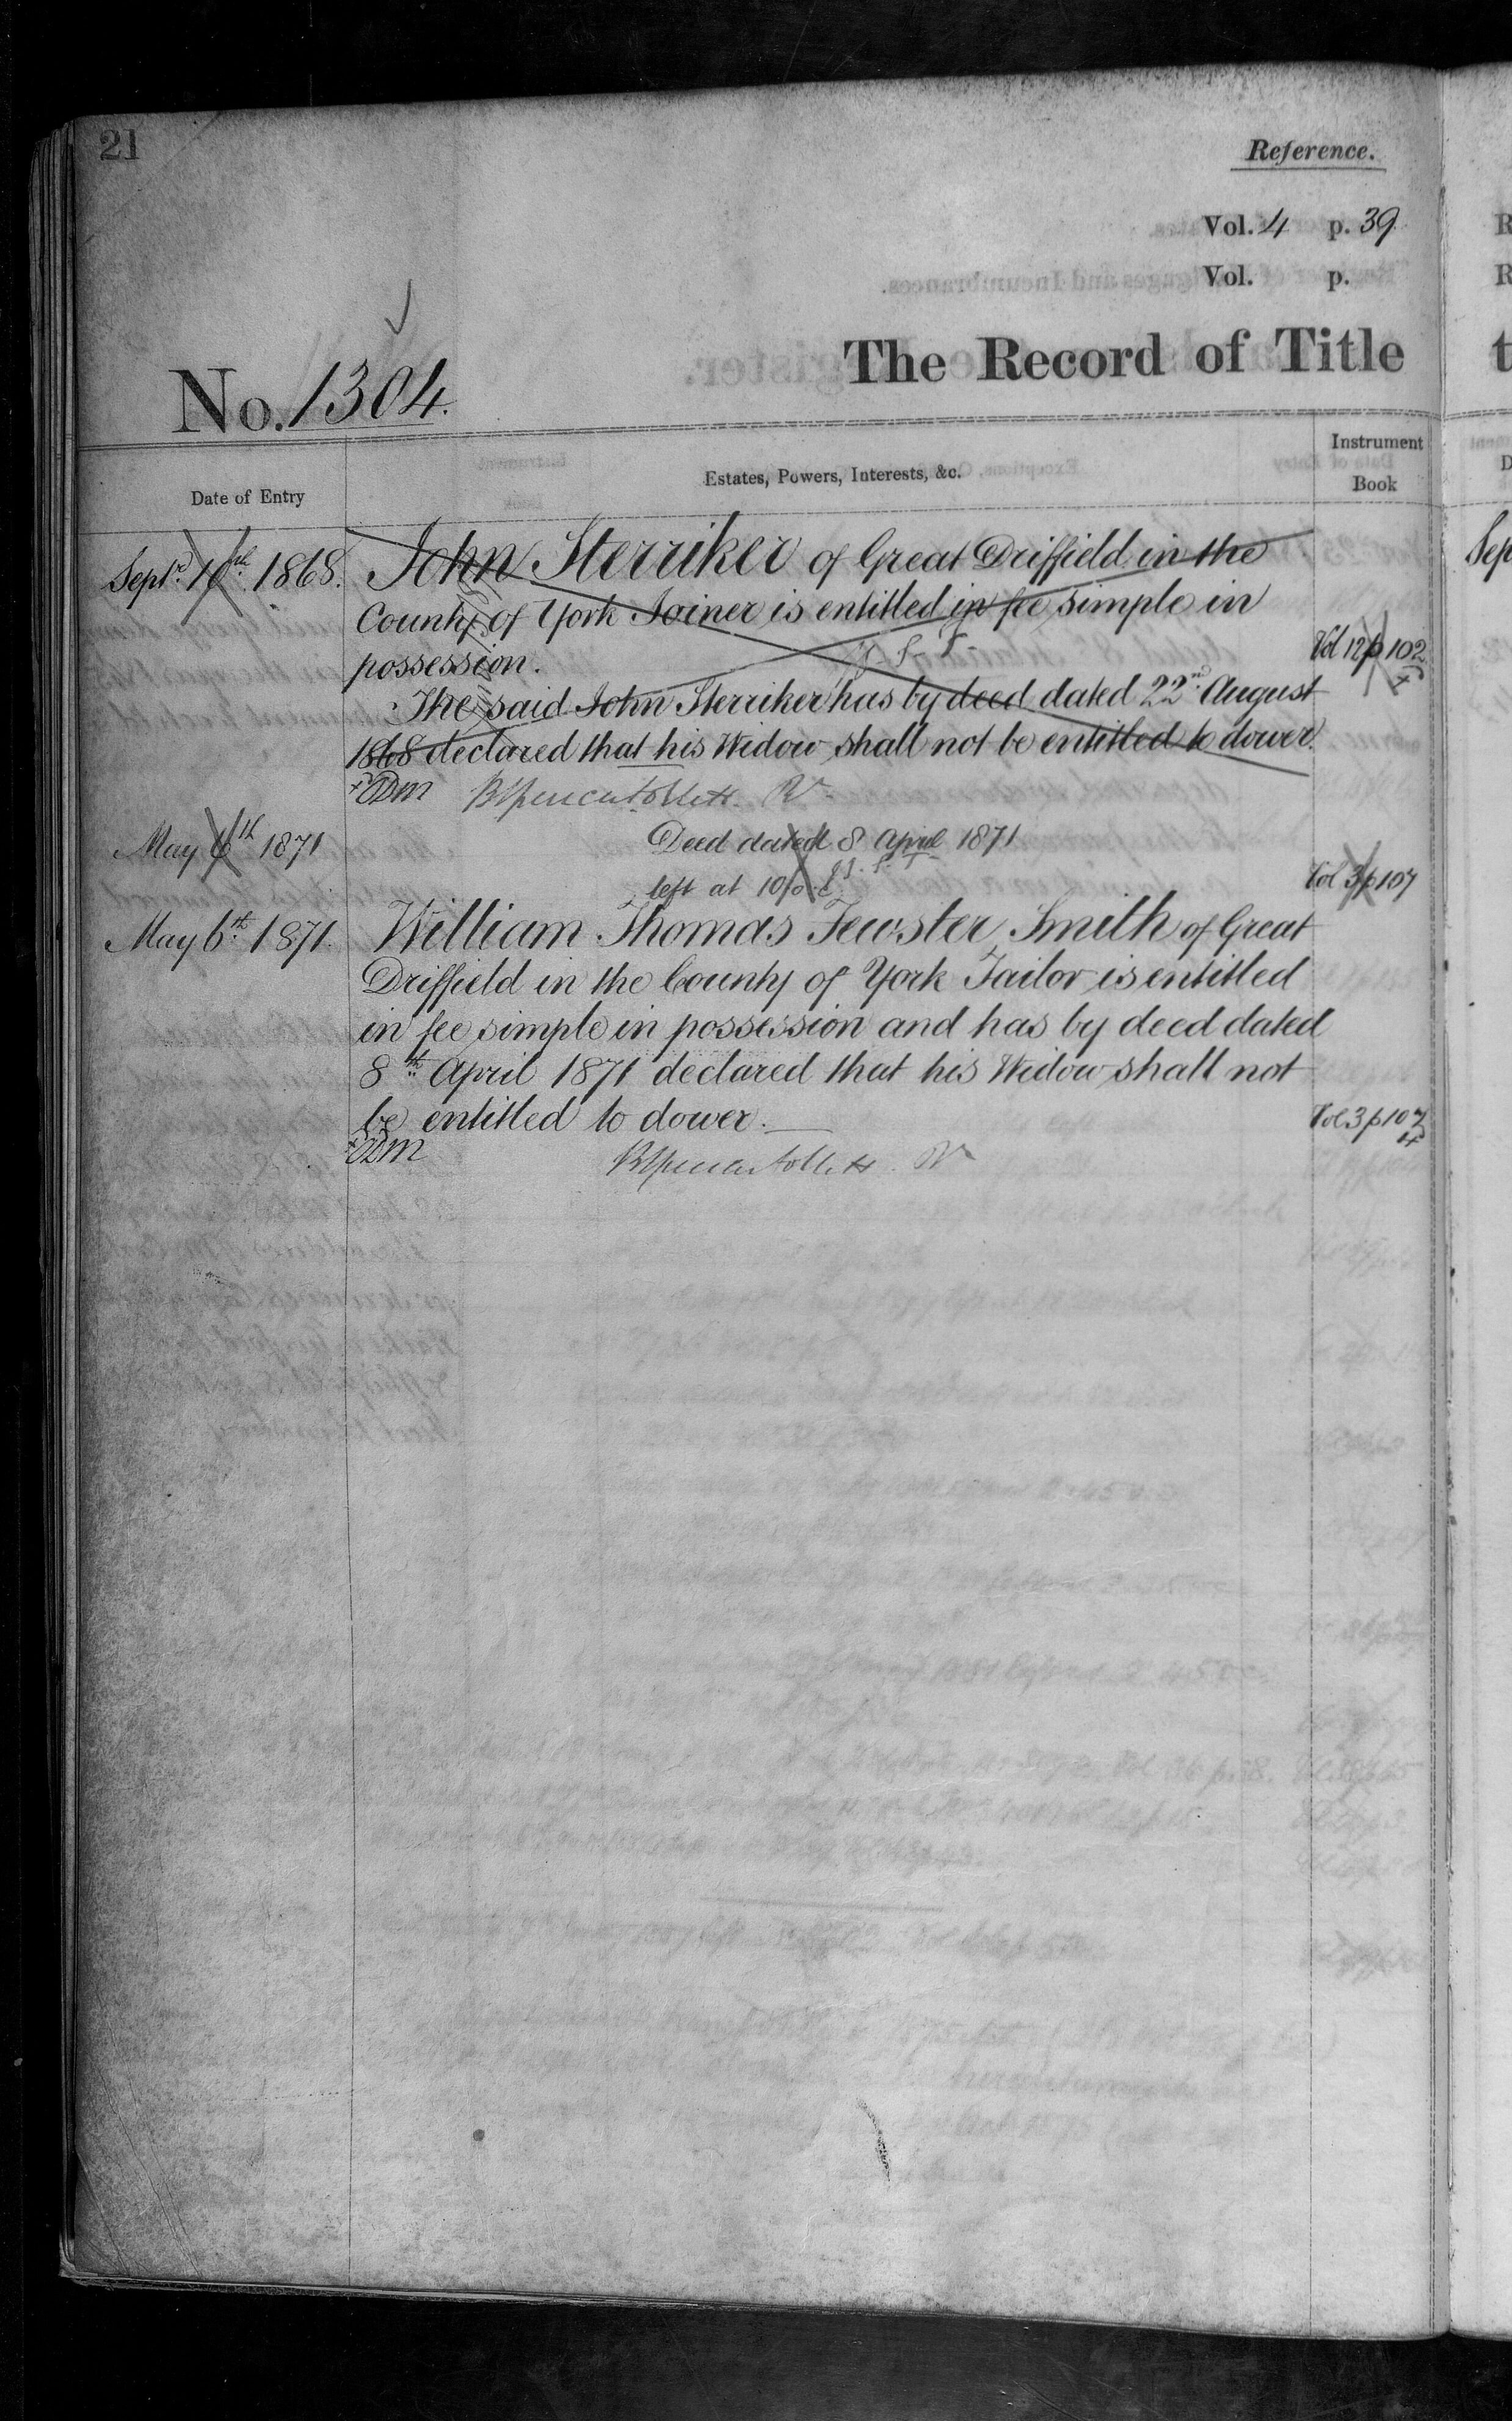 21
Reference.
Vol. 4 p. 39
Vol. p.
The Record of Title
No. 1304.
Date of Entry
Estates, Powers, Interests, &c.
Instrument
Book
Septr. 10th 1868. John Sterriker of Great Driffield in the
County of York Joiner is entitled in fee simple in
possession. Vol 12 p 102
The said John Sterriker has by deed dated 22nd August
1868 declared that his Widow shall not be entitled to dower.
May 6th 1871 Deed dated 8 April 1871
left at Vol 3 p 107
May 6th 1871. William Thomas Fewster Smith of Great
Driffield in the County of York Tailor is entitled
in fee simple in possession and has by deed dated
8th April 1871 declared that his Widow shall not
be entitled to dower. Vol 3 p 107